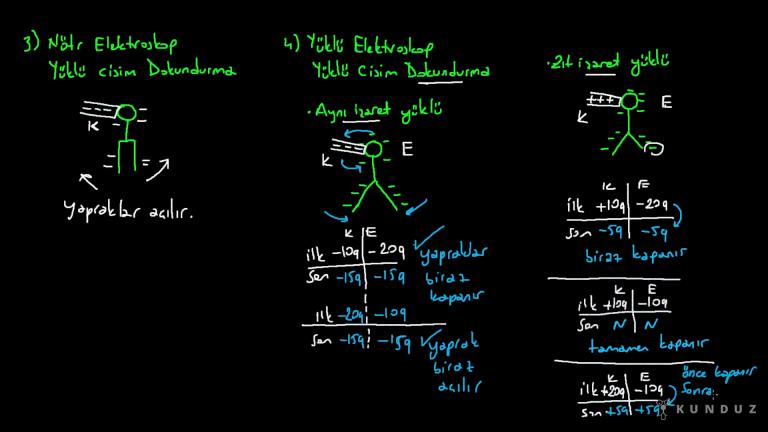 3) Nötr Elektroskop
Yüklü cisim Dokundurma
K
Yapraklar açılır.
4) Yüklü Elektroskop
Yüklü Cisim Dokundurma
• Aynı işaret yüklü
K E
K E
ilk -10q -20q
son -15q -15q
yapraklar
biraz
kapanır
ilk -20q -10q
son -15q -15q
yaprak
biraz
açılır
• Zıt işaret yüklü
+++ E
K
K E
ilk +10q -20q
son -5q -5q
biraz kapanır
K E
ilk +10q -10q
son N N
tamamen kapanır
K E
ilk +20q -10q
son +5q +5q
önce kapanır
sonra
KUNDUZ